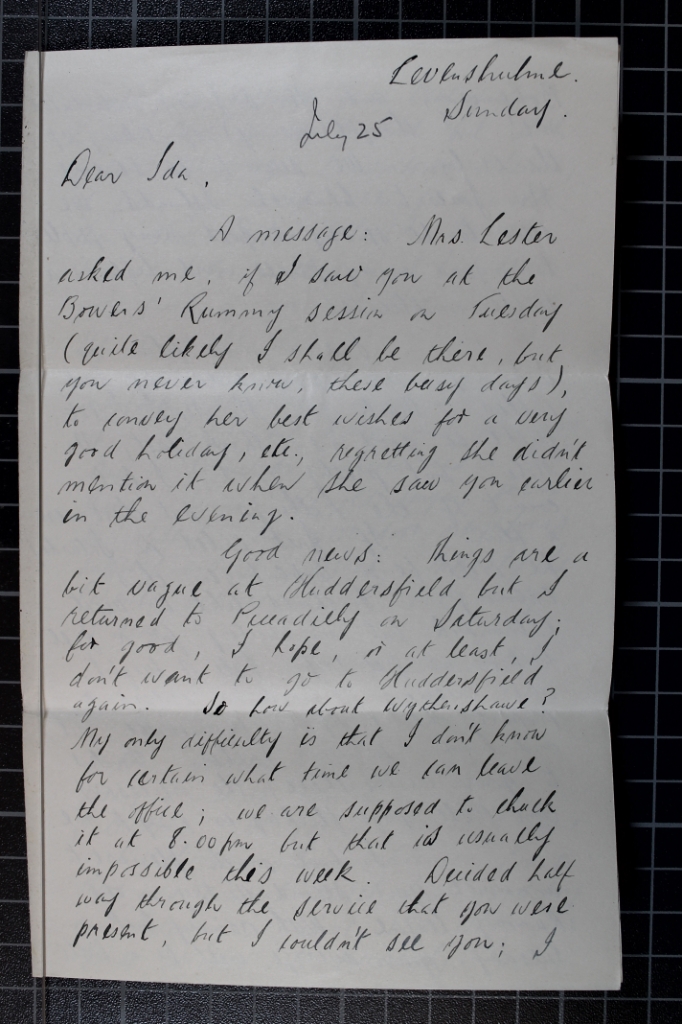 Levenshulme.
Sunday.
July 25
Dear Ida,
A message: Mrs. Lester
asked me, if I saw you at the
Bowers' Rummy session on Tuesday
(quite likely I shall be there, but
you never know, these busy days),
to convey her best wishes for a very
good holiday, etc., regretting she didn't
mention it when she saw you earlier
in the evening.
Good news: things are a
bit vague at Huddersfield but I
returned to Piccadilly on Saturday;
for good, I hope, or at least, I
don't want to go to Huddersfield
again. So how about Wythenshawe?
My only difficulty is that I don't know
for certain what time we can leave
the office; we are supposed to chuck
it at 8.00pm but that is usually
impossible this week. Decided half
way through the service that you were
present, but I couldn't see you; I